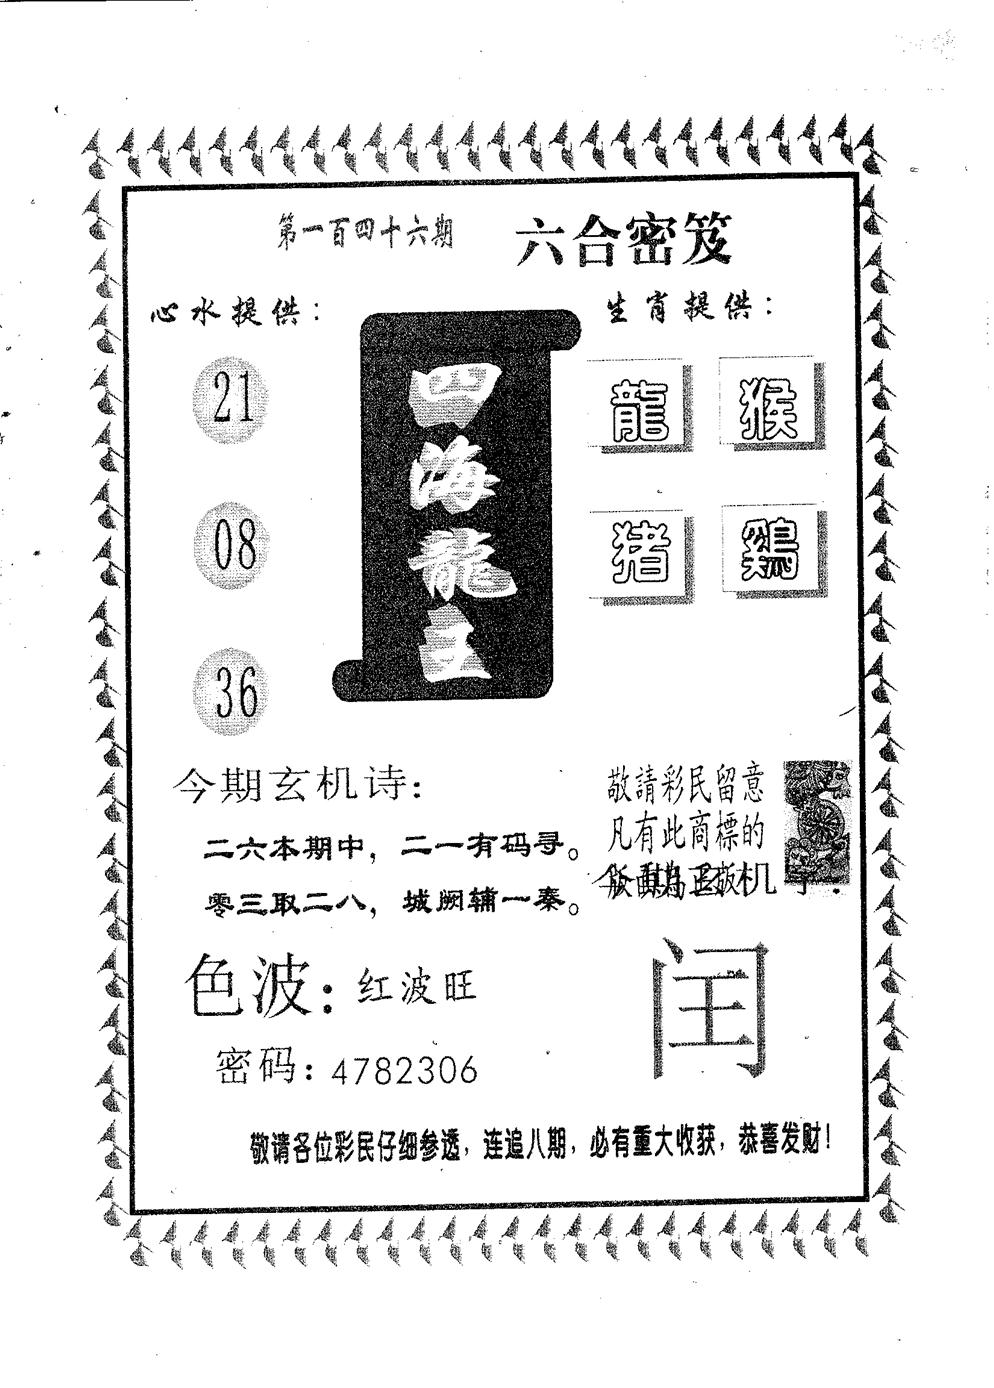 第一百四十六期 六合密笈
心水提供： 生肖提供：
21
08
36
四海龍王
龍 猴
猪 鷄
今期玄机诗：
二六本期中，二一有码寻。
零三取二八，城阙辅一秦。
敬請彩民留意
凡有此商標的
色波：红波旺
密码：4782306
闰
敬请各位彩民仔细参透，连追八期，必有重大收获，恭喜发财！